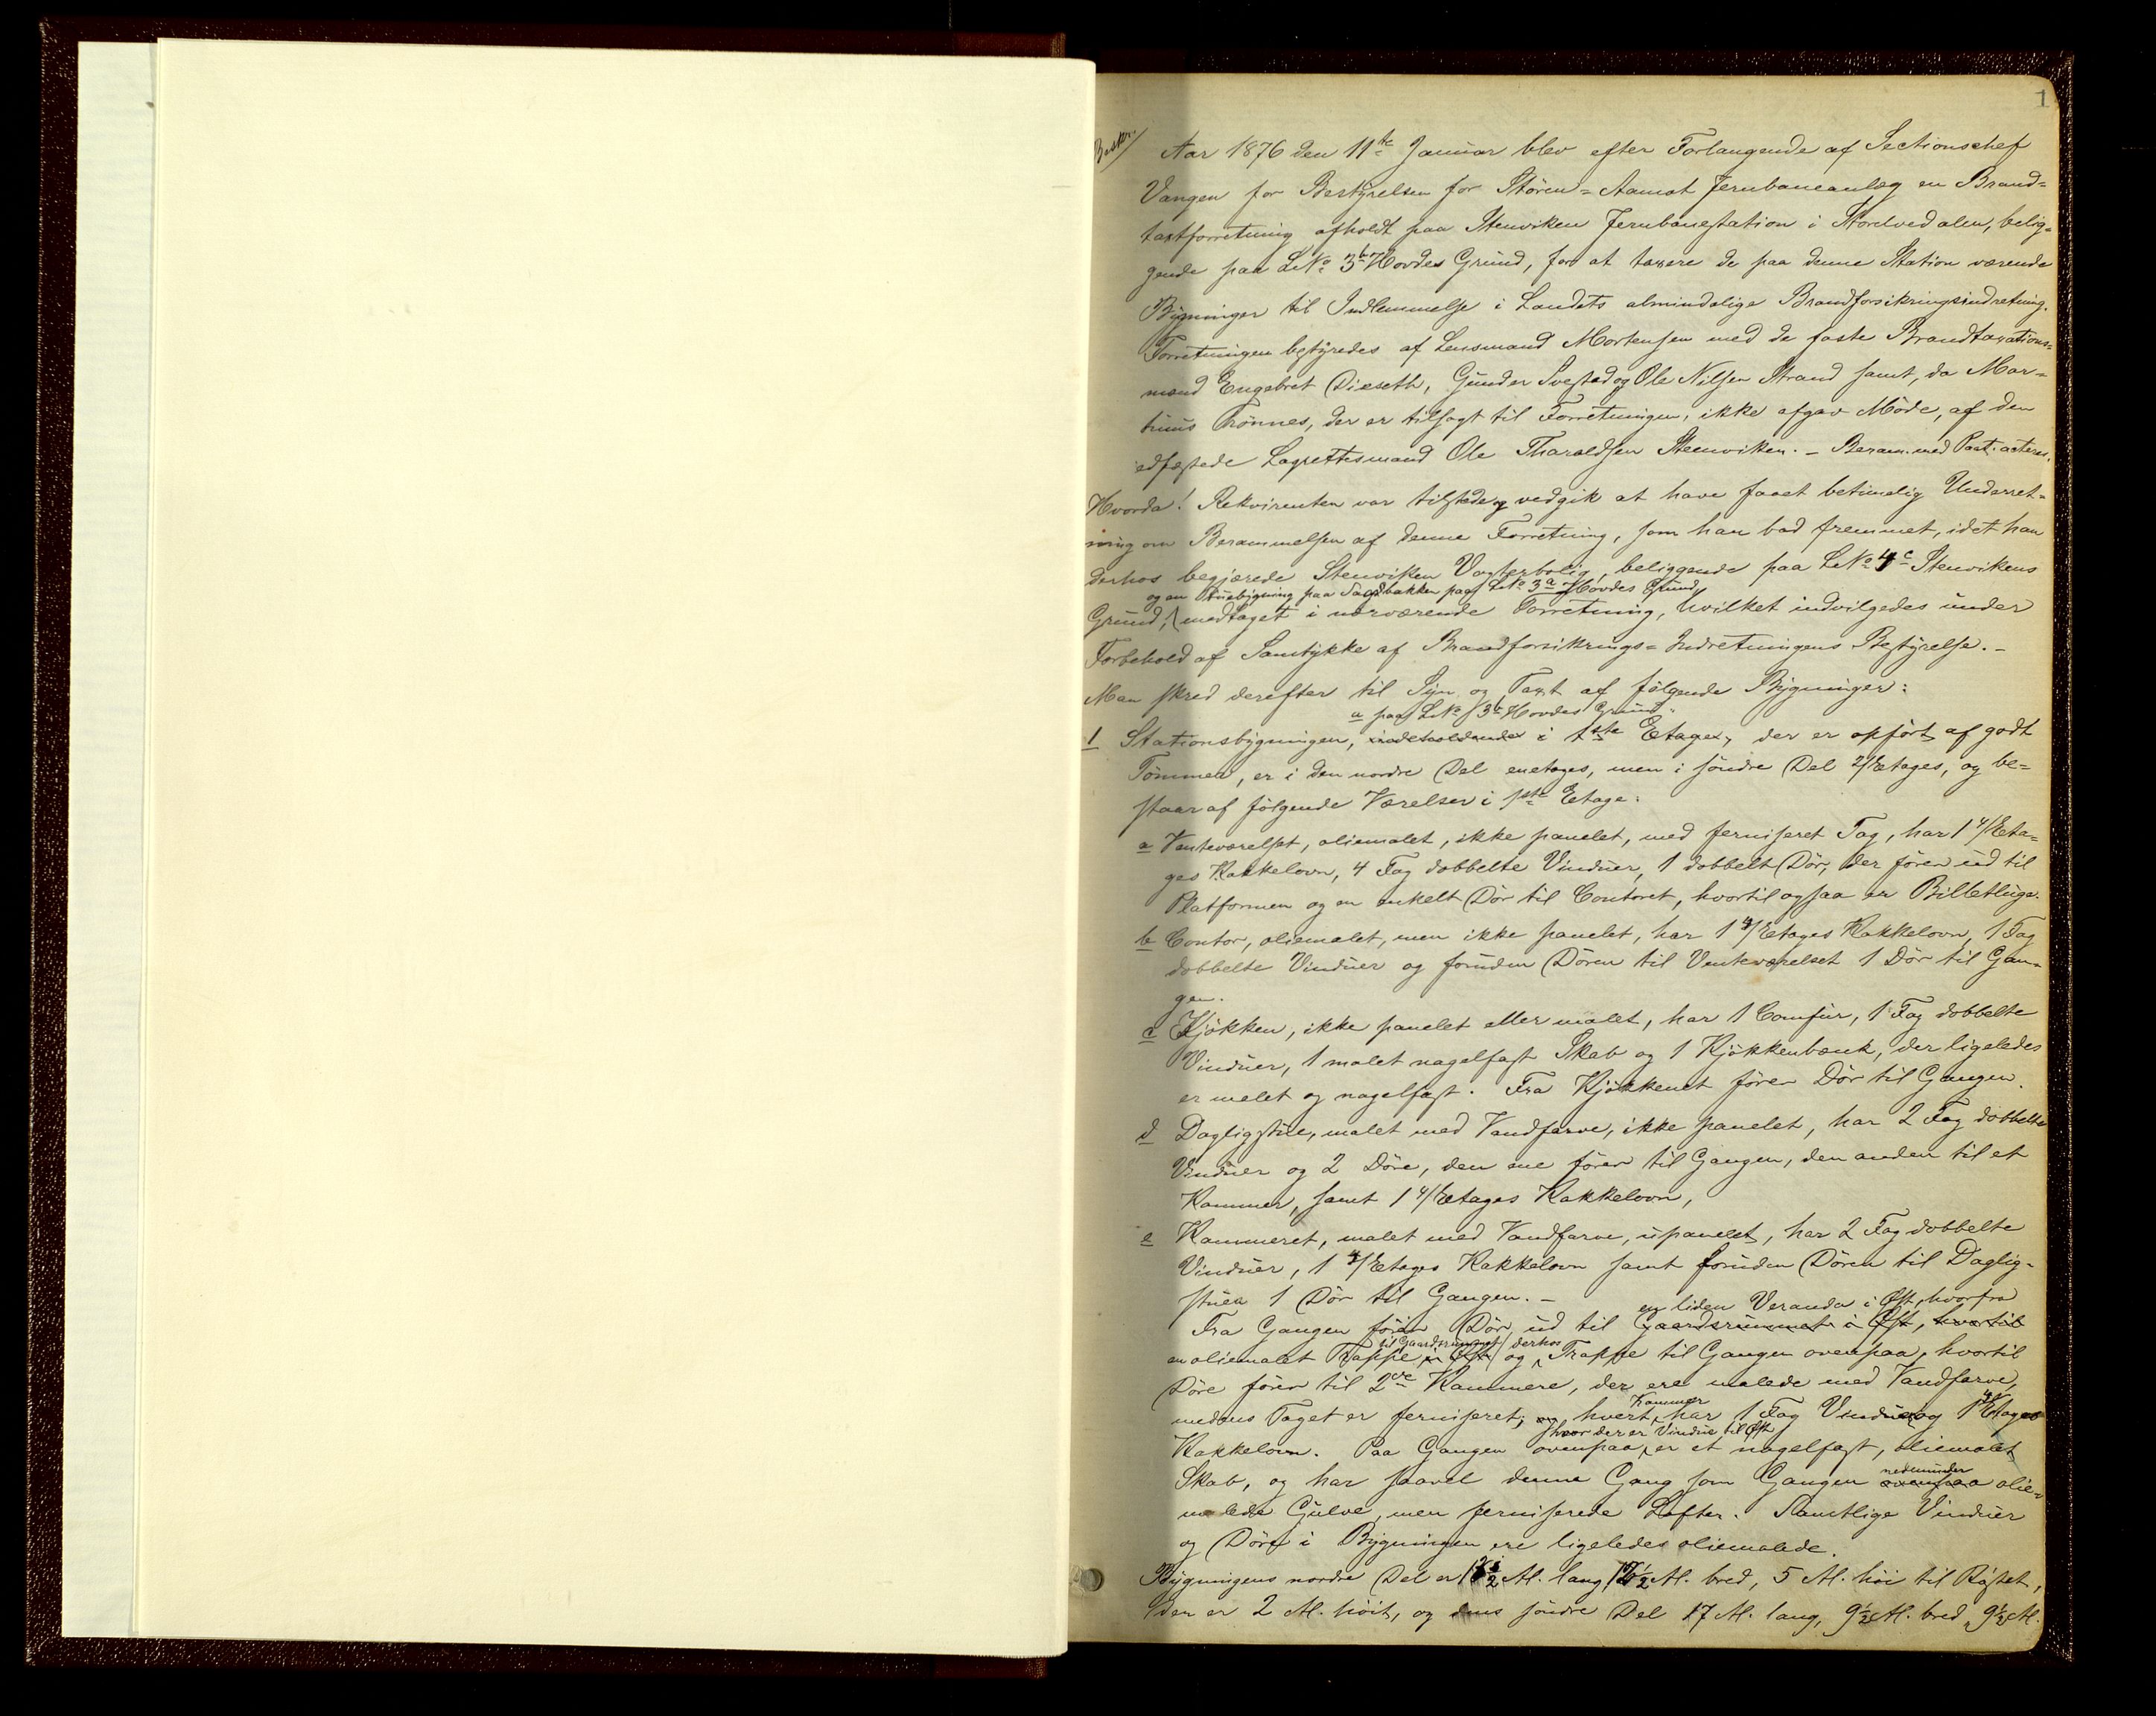 1
Beskr.
Aar 1876 den 11te Januar blev efter Forlangende af Sectionschef
Vangen for Bestyrelsen for Støren=Aamot Jernbaneanlæg en Brand=
taxtforretning afholdt paa Stenviken Jernbanestation i Storelvedalen, belig=
gende paa LNo 3b Hovdes Grund, for at taxere de paa denne Station værende
Bygninger til Indlemmelse i Landets almindelige Brandforsikringsindretning.
Forretningen bestyredes af Lensmand Mortensen med de faste Brandtaxations=
mænd Engebret Dieseth, Gunder Svestad og Ole Nilsen Strand samt, da Mar=
tinus Trønnes, der er tilsagt til Forretningen, ikke afgav Møde, af den
edfæstede Lagrettesmand Ole Tharaldsen Stenviken. – Beram. med Paat. acteres.
Hvorda! Rekvirenten var tilstede og vedgik at have faaet betimelig Underret=
ning om Berammelsen af denne Forretning, som han bad fremmet, idet han
derhos begjærede Stenviken Vogterbolig, beliggende paa LNo 4c Stenvikens
og en Stuebygning paa Sagbakken paa LNo 3a Hovdes Grund
Grund, medtaget i nærværende Forretning, hvilket indvilgedes under
Forbehold af Samtykke af Brandforsikrings=Indretningens Bestyrelse. –
Man skred derefter til Syn og Taxt af følgende Bygninger:
a paa LNo 3b Hovdes Grund:
1 Stationsbygningen, indeholdende i 1ste Etage, der er opført af godt
Tømmer, er i den nordre Del enetages, men i søndre Del 2/Etages, og be=
staar af følgende Værelser i 1ste Etage:
a Venteværelset, oliemalet, ikke panelet, med ferniseret Tag, har 1 4/Eta=
ges Kakkelovn, 4 Fag dobbelte Vinduer, 1 dobbelt Dør, der fører ud til
Platformen og en enkelt Dør til Contoret, hvortil ogsaa er Billetluge.
b Contor, oliemalet, men ikke panelet, har 1 4/Etages Kakkelovn, 1 Fag
dobbelte Vinduer og foruden Døren til Venteværelset 1 Dør til Gan=
gen.
c Kjøkken, ikke panelet eller malet, har 1 Comfur, 1 Fag dobbelte
Vinduer, 1 malet nagelfast Skab og 1 Kjøkkenbænk, der ligeledes
er malet og nagelfast. Fra Kjøkkenet fører Dør til Gangen.
d Dagligstue, malet med Vandfarve, ikke panelet, har 2 Fag dobbelte
Vinduer og 2 Døre, den ene fører til Gangen, den anden til et
Kammer, samt 1 4/Etages Kakkelovn,
e Kammeret, malet med Vandfarve, upanelet, har 2 Fag dobbelte
Vinduer, 1 4/Etages Kakkelovn samt foruden Døren til Daglig=
stuen 1 Dør til Gangen. –
en liden Veranda i Øst, hvorfra
Fra Gangen fører Dør ud til Gaardsrummet i Øst, hvortil
til Gaardsrummet derhos
en oliemalet Trappe i Øst og Trappe til Gangen ovenpaa, hvortil
Døre fører til 2de Kammere, der ere malede med Vandfarve,
Kammer
medens Taget er ferniseret; og hvert har 1 Fag Vinduer og 1 4/Etages
hvor der er Vindue til Øst
Kakkelovn. Paa Gangen ovenpaa er et nagelfast, oliemalet
nedenunder
Skab, og har saavel denne Gang som Gangen ovenpaa olie=
malede Gulve, men ferniserede Lofter. Samtlige Vinduer
og Døre i Bygningen ere ligeledes oliemalede.
Bygningens nordre Del er lang bred, 5 Al. høi til Røstet,
der er 2 Al. høit, og dens søndre Del 17 Al. lang, 9½ Al. bred, 9½ Al.